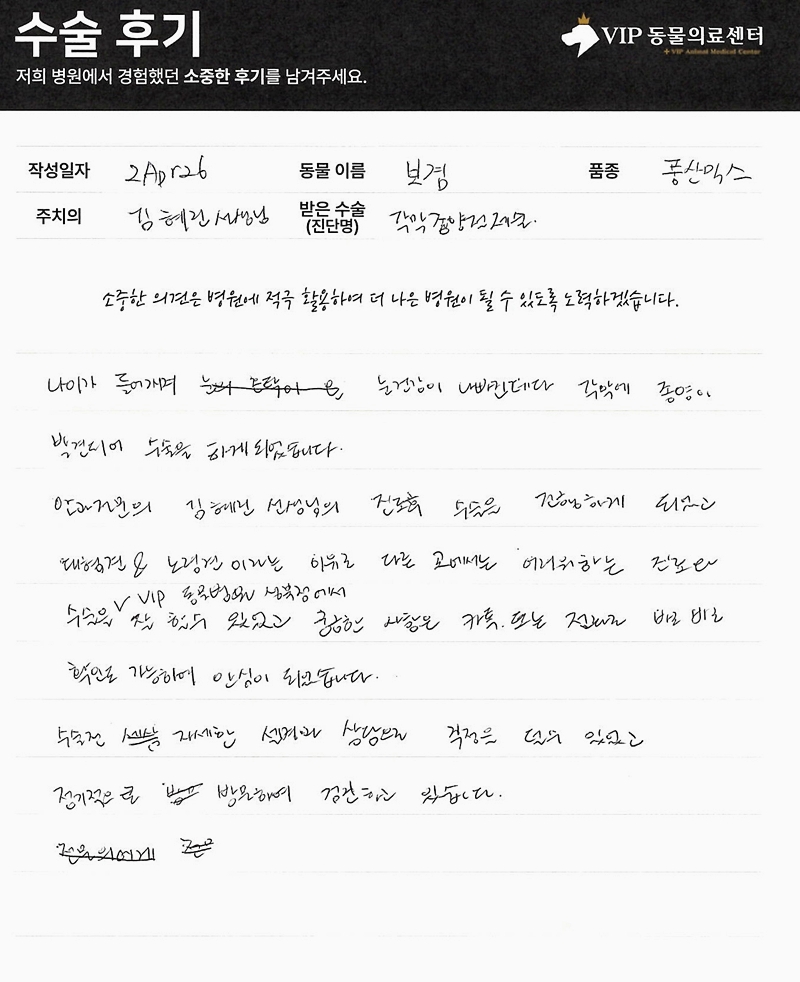 수술 후기
저희 병원에서 경험했던 소중한 후기를 남겨주세요.
VIP 동물의료센터
VIP Animal Medical Center
작성일자 2Apr26 동물 이름 보겸 품종 풍산믹스
주치의 김혜린 선생님 받은 수술 (진단명) 각막종양 전제술.
소중한 의견은 병원에 적극 활용하여 더 나은 병원이 될 수 있도록 노력하겠습니다.
나이가 들어가며 눈건강이 나빠진데다 각막에 종양이
발견되어 수술을 하게 되었습니다.
안과전문의 김혜린 선생님의 진료후 수술을 진행하게 되었고
대형견 & 노령견 이라는 이유로 다른 곳에서는 어려워하는 진료와
VIP 동물병원 성북점에서
수술을 잘 할수 있었고 궁금한 사항은 카톡 또는 전화로 바로바로
확인도 가능하여 안심이 되었습니다.
수술전 자세한 설명과 상담으로 걱정을 덜수 있었고
정기적으로 방문하여 검진하고 있습니다.